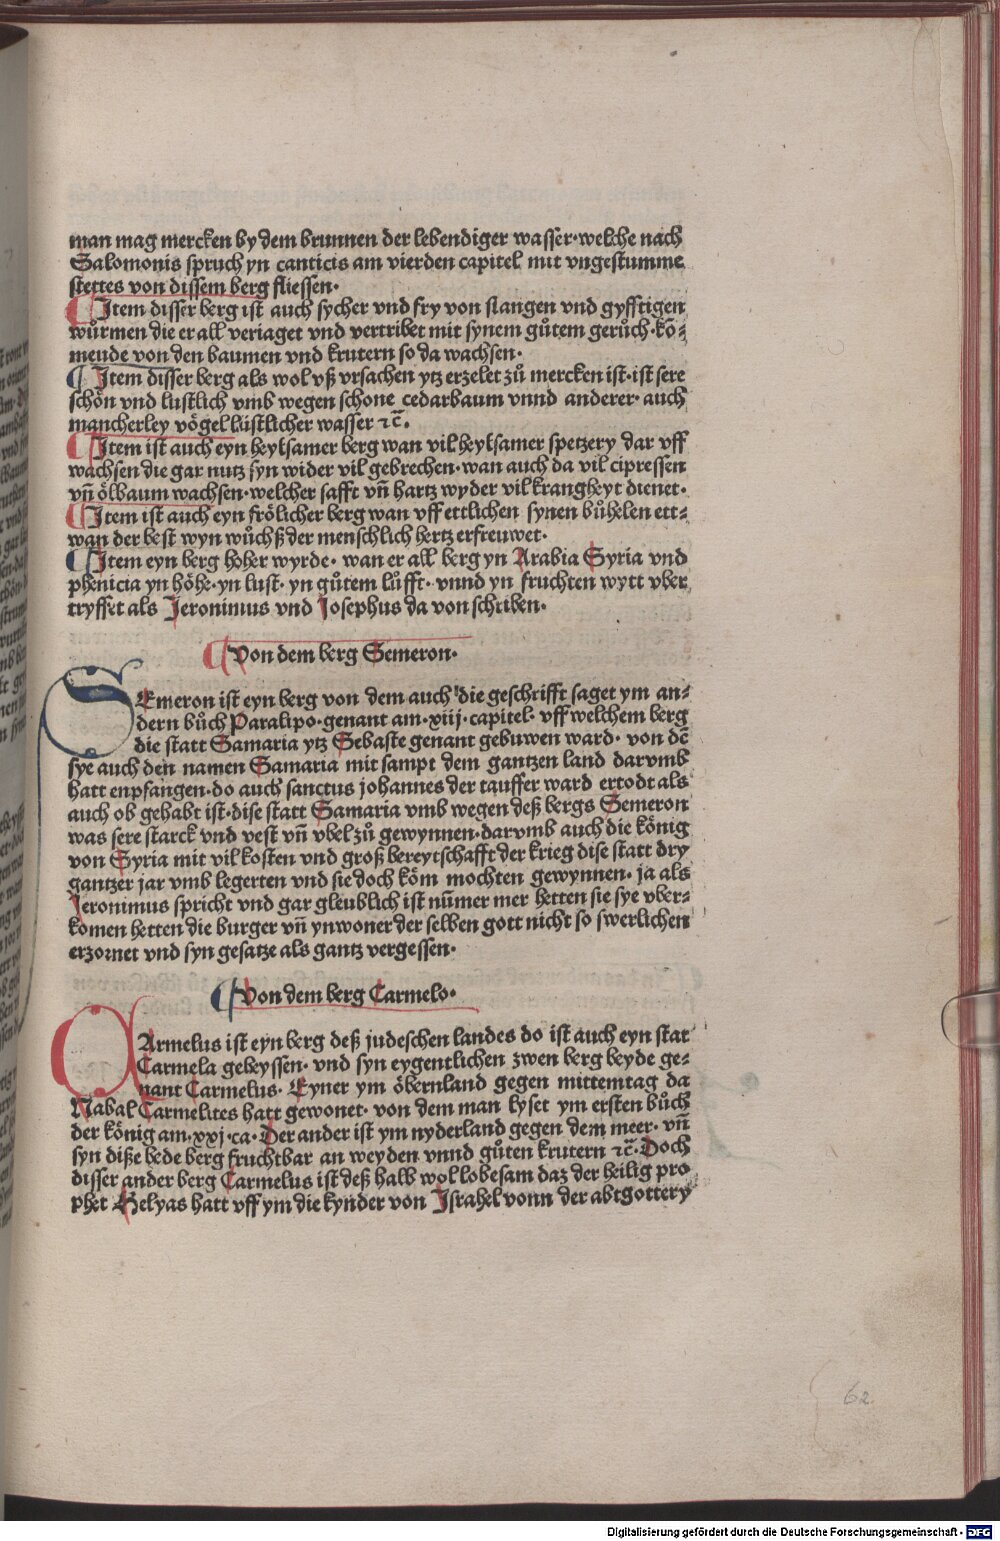 man mag mercken by dem brunnen der lebendiger wasser·welche nach
Salomonis spruch yn canticis am vierden capitel mit vngestumme
stettes von dissem berg fliessen·
¶ Item disser berg ist auch sycher vnd fry von slangen vnd gyfftigen
wůrmen die er all veriaget vnd vertribet mit synem gůtem gerůch·kō⸗
mende von den baumen vnd krutern so da wachsen·
¶ Item disser berg als wol vß vrsachen ytz erzelet zů mercken ist·ist sere
schōn vnd lustlich vmb wegen schone cedarbaum vnnd anderer·auch
mancherley vōgel lůstlicher wasser ⁊c̄·
¶ Item ist auch eyn heylsamer berg wan vil heylsamer spetzery dar vff
wachsen die gar nutz syn wider vil gebrechen·wan auch da vil cipressen
vn̄ ōlbaum wachsen·welcher safft vn̄ hartz wyder vil krangheyt dienet·
¶ Item ist auch eyn frōlicher berg wan vff ettlichen synen bůhelen ett⸗
wan der best wyn wůchß der menschlich hertz erfreuwet·
¶ Item eyn berg hoher wyrde·wan er all berg yn Arabia Syria vnd
phenicia yn hōhe·yn lust·yn gůtem lůfft·vnnd yn fruchten wytt vber
tryffet als Jeronimus vnd Josephus da von schriben·
¶ Von dem berg Semeron·
SEmeron ist eyn berg von dem auch die geschrifft saget ym an⸗
dern bůch Paralipo·genant am·xiij·capitel·vff welchem berg
die statt Samaria ytz Sebaste genant gebuwen ward·von dē
sye auch den namen Samaria mit sampt dem gantzen land darvmb
hatt enpfangen·do auch sanctus johannes der tauffer ward ertodt als
auch ob gehabt ist·dise statt Samaria vmb wegen deß bergs Semeron
was sere starck vnd vest vn̄ vbel zů gewynnen·darvmb auch die kōnig
von Syria mit vil kosten vnd groß bereytschafft der krieg dise statt dry
gantzer jar vmb legerten vnd sie doch kōm mochten gewynnen·ja als
Jeronimus spricht vnd gar gleublich ist nům̄er mer hetten sie sye vber⸗
komen hetten die burger vn̄ ynwoner der selben gott nicht so swerlichen
erzornet vnd syn gesatze als gantz vergessen·
¶ Von dem berg Carmelo·
CArmelus ist eyn berg deß judeschen landes do ist auch eyn stat
Carmela geheyssen·vnd syn eygentlichen zwen berg beyde ge⸗
nant Carmelus·Eyner ym ōbernland gegen mittemtag da
Nabal Carmelites hatt gewonet·von dem man lyset ym ersten bůch
der kōnig am·xxj·ca·Der ander ist ym nyderland gegen dem meer·vn̄
syn diße bede berg fruchtbar an weyden vnnd gůten krutern ⁊c̄·Doch
disser ander berg Carmelus ist deß halb wol lobesam daz der heilig pro
phet Helyas hatt vff ym die kynder von Israhel vonn der abtgottery
62
Digitalisierung gefördert durch die Deutsche Forschungsgemeinschaft - DFG